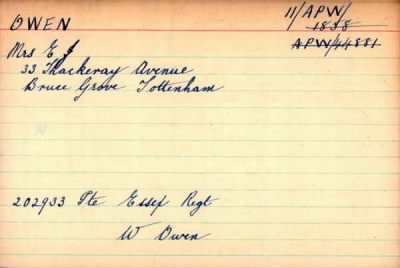 OWEN
11/APW/
1838
APW/44881
Mrs E J
33 Thackeray Avenue
Bruce Grove Tottenham
202933 Pte Essex Regt
W Owen